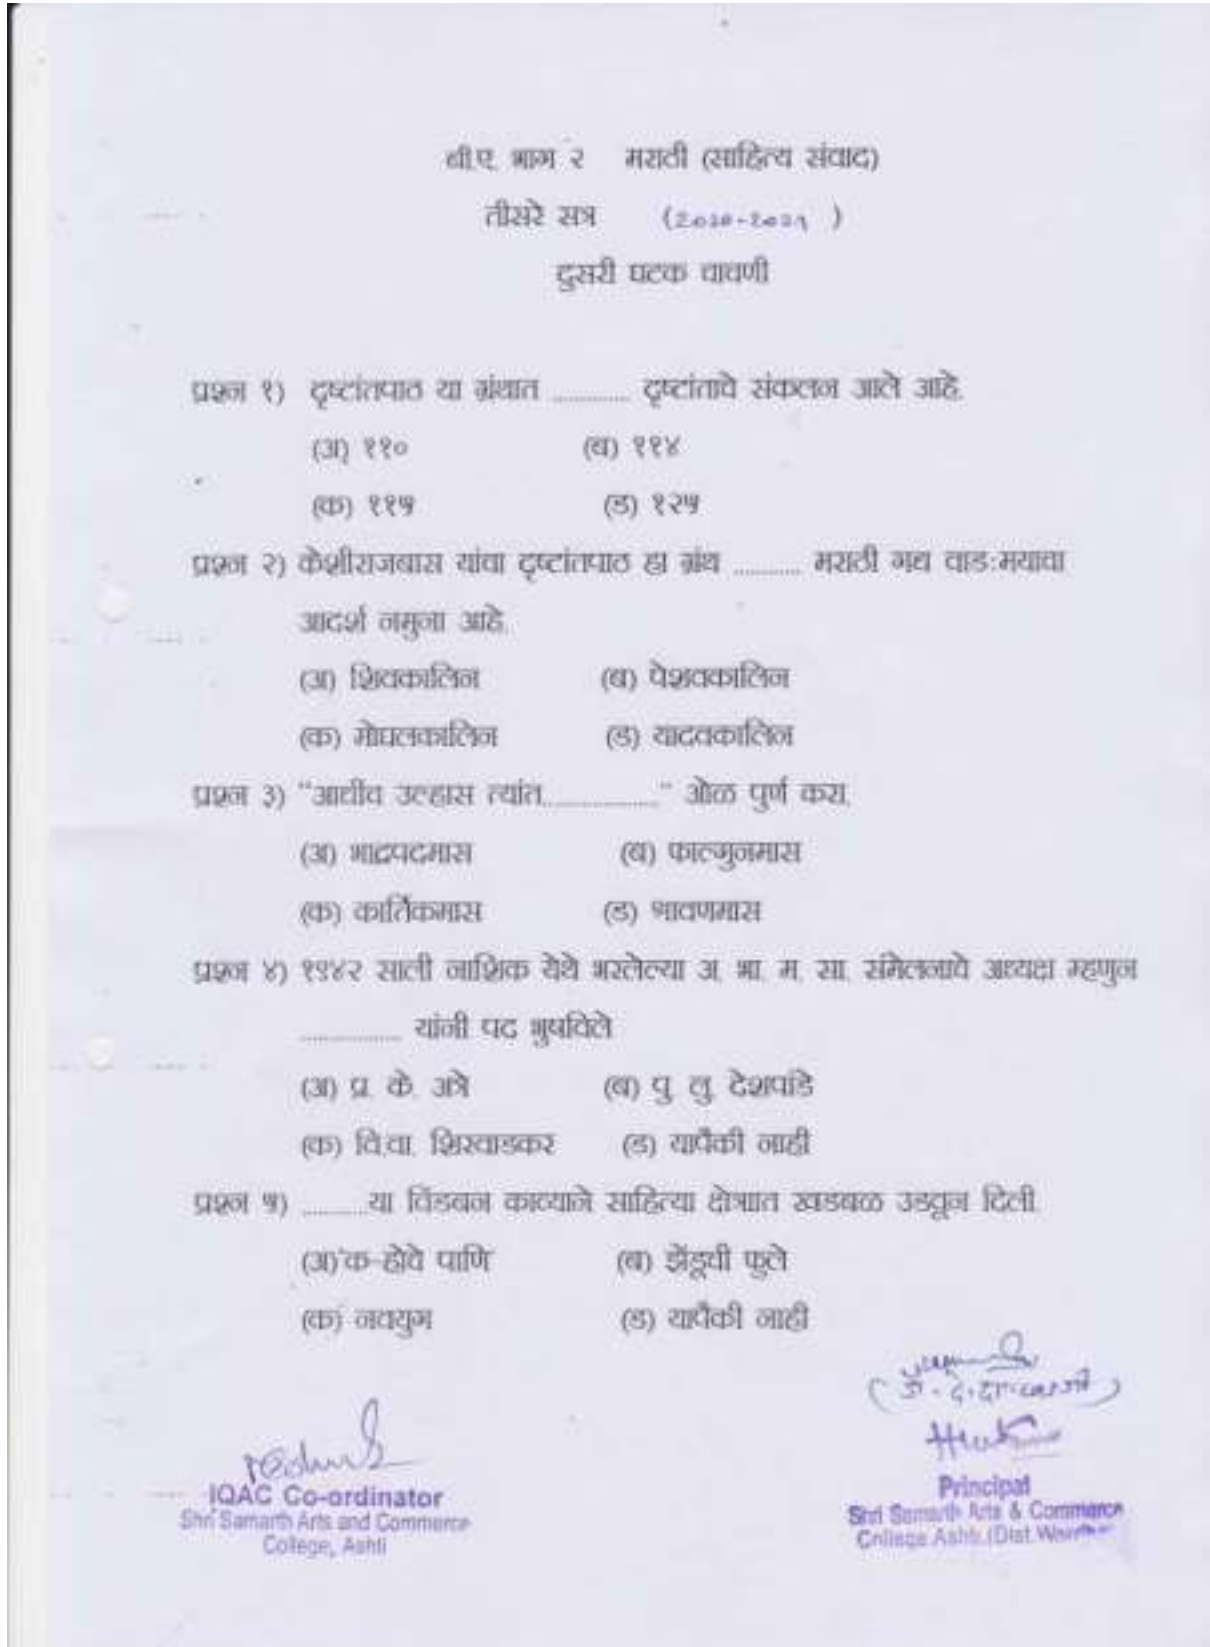 बी.ए. भाग २ मराठी (साहित्य संवाद)
तीसरे सत्र (२०२०-२०२१ )
दुसरी घटक चाचणी
प्रश्न १) दृष्टांतपाठ या ग्रंथात ............ दृष्टांताचे संकलन आले आहे.
(अ) ११० (ब) ११४
(क) ११५ (ड) १२५
प्रश्न २) केशीराजबास यांचा दृष्टांतपाठ हा ग्रंथ ........... मराठी गद्य वाड:मयाचा
आदर्श नमुना आहे.
(अ) शिवकालिन (ब) पेशवकालिन
(क) मोघलकालिन (ड) यादवकालिन
प्रश्न ३) "आधीच उल्हास त्यांत.................." ओळ पुर्ण करा.
(अ) भाद्रपदमास (ब) फाल्गुनमास
(क) कार्तिकमास (ड) श्रावणमास
प्रश्न ४) १९४२ साली नाशिक येथे भरलेल्या अ. भा. म. सा. संमेलनाचे अध्यक्ष म्हणुन
................ यांनी पद भुषविले
(अ) प्र. के. अत्रे (ब) पु. लु. देशपांडे
(क) वि.वा. शिरवाडकर (ड) यापैकी नाही
प्रश्न ५) ..........या विडंबन काव्याने साहित्या क्षेत्राात खडबळ उडवून दिली.
(अ) क-होचे पाणि (ब) झेंडूची फुले
(क) नवयुग (ड) यापैकी नाही
IQAC Co-ordinator
Shri Samarth Arts and Commerce
College, Ashti
Principal
Shri Samarth Arts & Commerce
College Ashti (Dist.